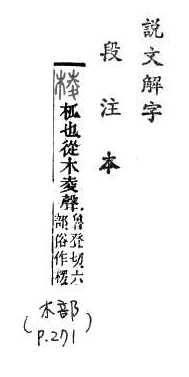 說文解字
段注本
棱 柧也從木夌聲
魯登切六
部俗作楞
(木部
P.271)